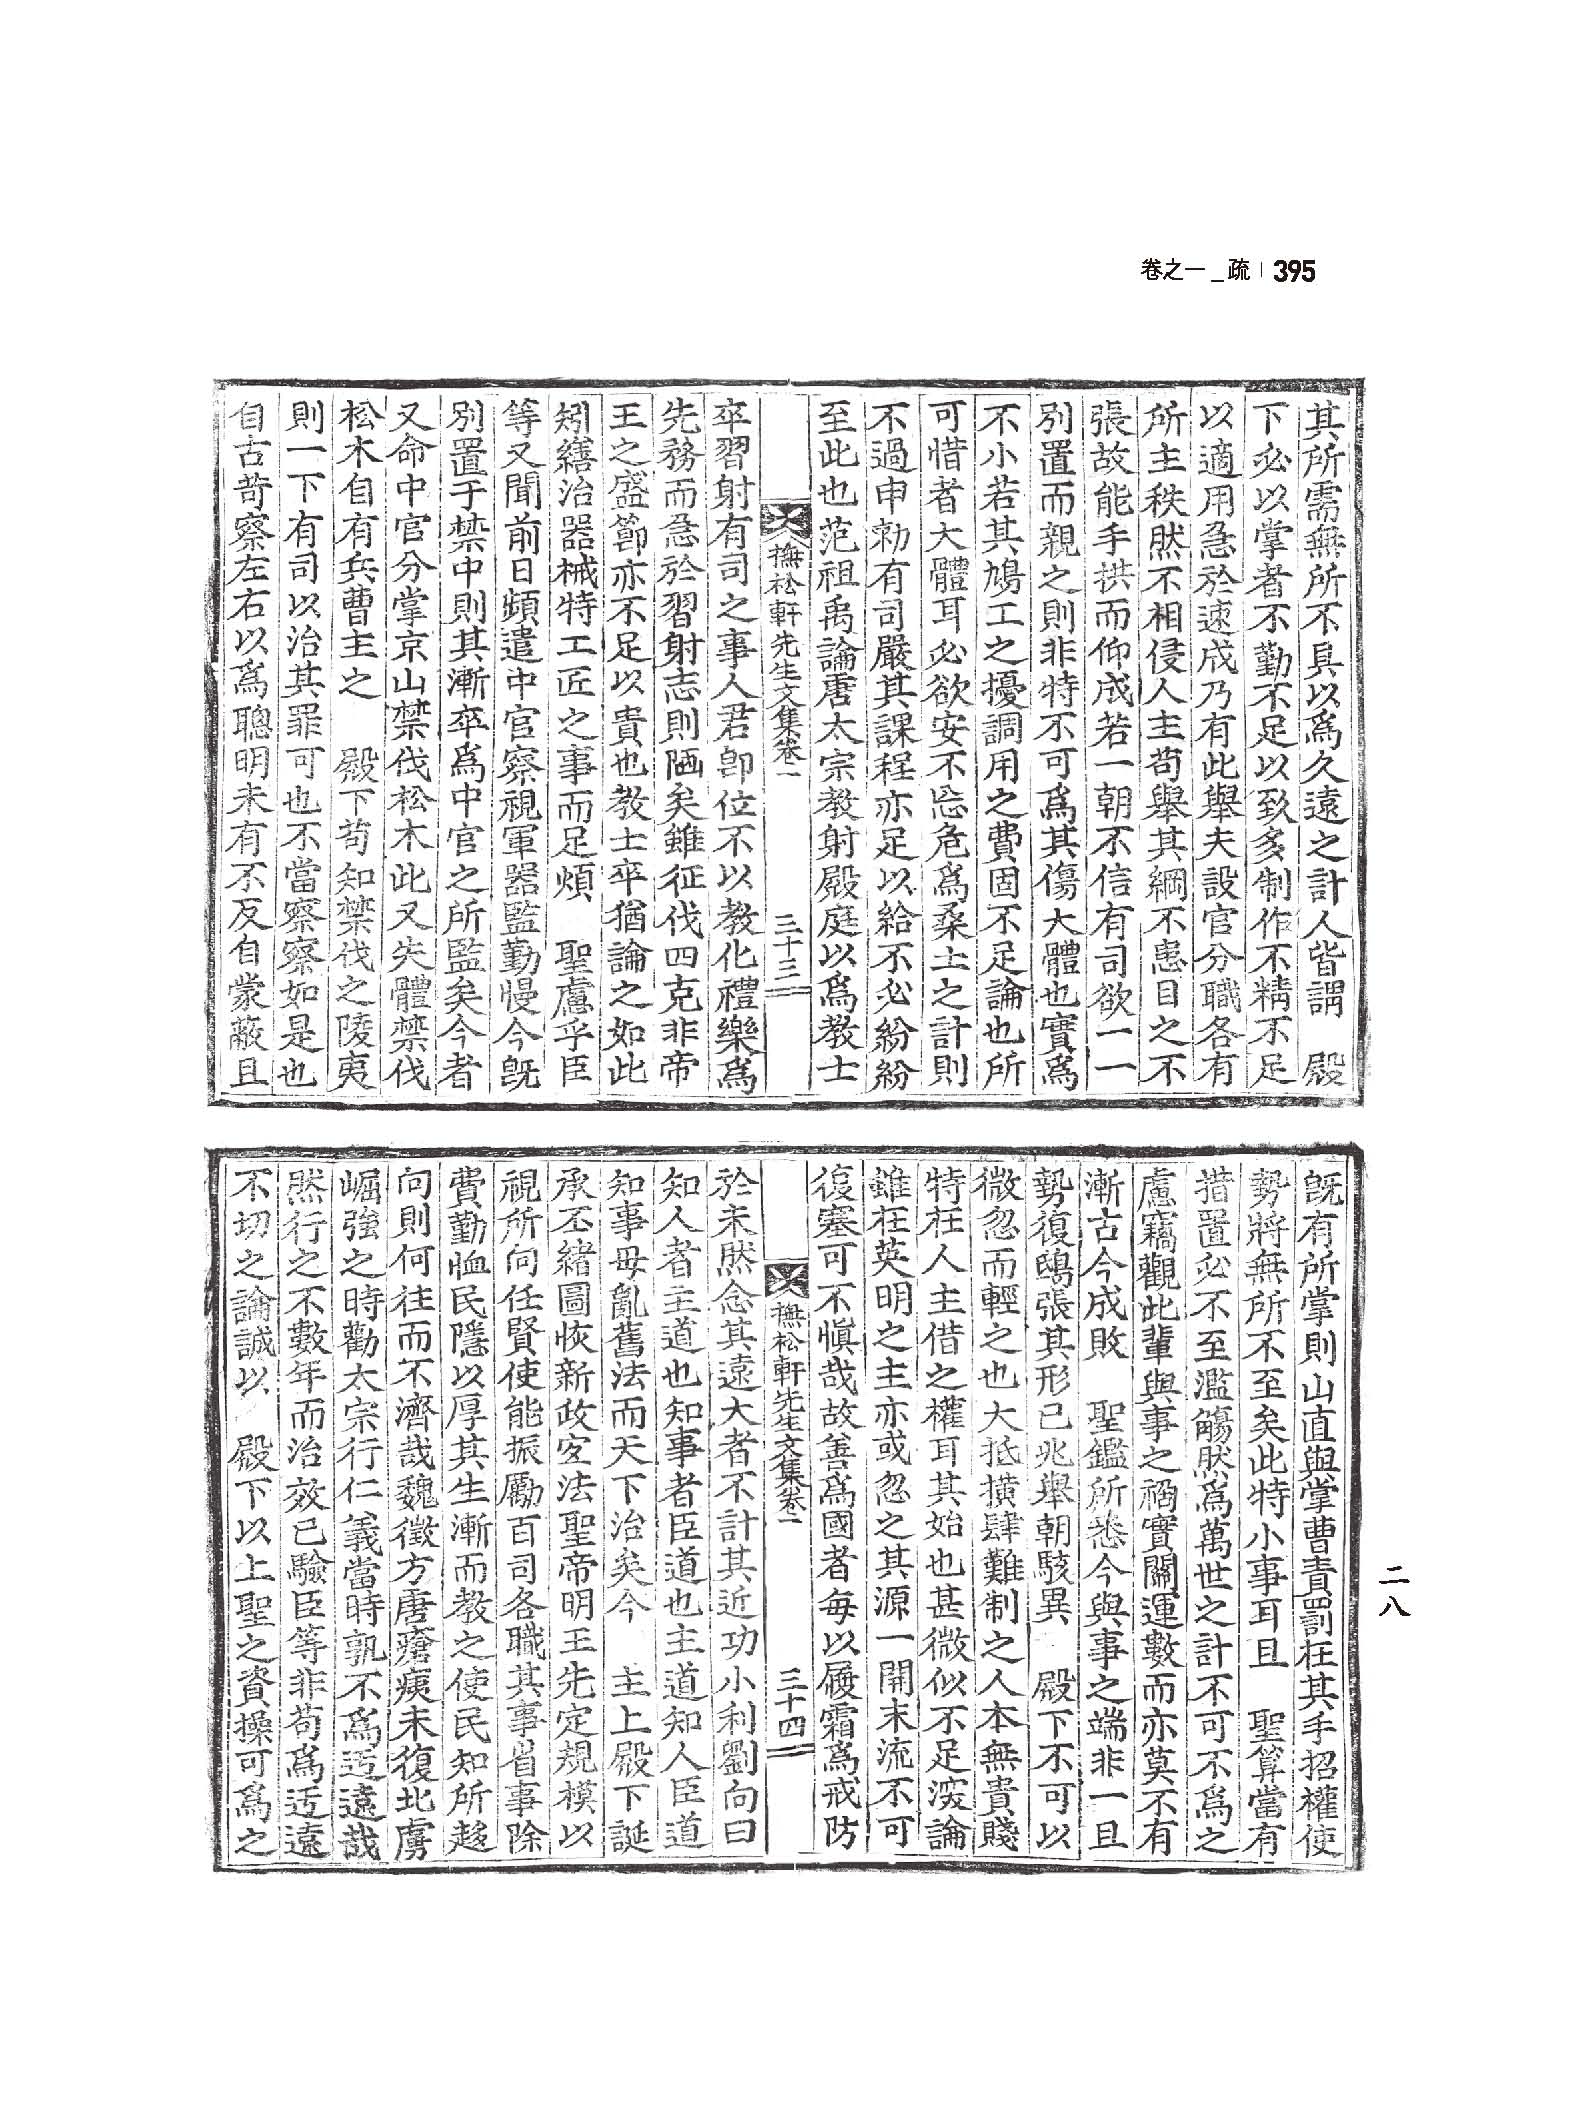 卷之一 _ 疏 | 395
其所需無所不具以爲久遠之計人皆謂 殿
下必以掌者不勤不足以致多制作不精不足
以適用急於速成乃有此舉夫設官分職各有
所主秩然不相侵人主苟舉其綱不患目之不
張故能手拱而仰成若一朝不信有司欲一一
別置而親之則非特不可爲其傷大體也實爲
不小若其鳩工之擾調用之費固不足論也所
可惜者大體耳必欲安不忘危爲桑土之計則
不過申勑有司嚴其課程亦足以給不必紛紛
至此也范祖禹論唐太宗教射殿庭以爲教士
撫松軒先生文集卷一 三十三
卒習射有司之事人君卽位不以教化禮樂爲
先務而急於習射志則陋矣雖征伐四克非帝
王之盛節亦不足以貴也教士卒猶論之如此
矧繕治器械特工匠之事而足煩 聖慮乎臣
等又聞前日頻遣中官察視軍器監勤慢今旣
別置于禁中則其漸卒爲中官之所監矣今者
又命中官分掌京山禁伐松木此又失體禁伐
松木自有兵曹主之 殿下苟知禁伐之陵夷
則一下有司以治其罪可也不當察察如是也
自古苛察左右以爲聰明未有不反自蒙蔽且
旣有所掌則山直與掌曹責罰在其手招權使
勢將無所不至矣此特小事耳且 聖算當有
措置必不至濫觴然爲萬世之計不可不爲之
慮竊觀此輩與事之禍實關運數而亦莫不有
漸古今成敗 聖鑑所悉今與事之端非一且
勢復鴟張其形已兆舉朝駭異 殿下不可以
微忽而輕之也大抵橫肆難制之人本無貴賤
特在人主借之權耳其始也甚微似不足深論
雖在英明之主亦或忽之其源一開末流不可
復塞可不愼哉故善爲國者每以履霜爲戒防
撫松軒先生文集卷一 三十四
於未然念其遠大者不計其近功小利劉向曰
知人者主道也知事者臣道也主道知人臣道
知事毋亂舊法而天下治矣今 主上殿下誕
承丕緒圖恢新政定法聖帝明王先定規模以
視所向任賢使能振勵百司各職其事省事除
費勤恤民隱以厚其生漸而教之使民知所趍
向則何往而不濟哉魏徵方唐瘡痍未復北虜
崛強之時勸太宗行仁義當時孰不爲迃遠哉
然行之不數年而治效已驗臣等非苟爲迃遠
不切之論誠以 殿下以上聖之資操可爲之
二八